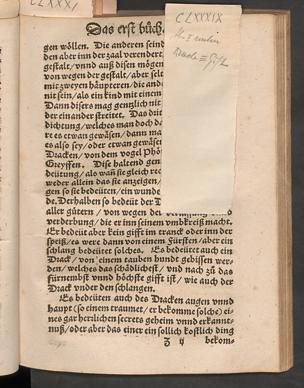 CLXXXIX
Das erst büch
gen wöllen. Die anderen seind
den aber inn der zaal verenderet
gestalt/ vnnd auß disen mögen
von wegen der gestalt/ aber selt
mit zweyen häupteren/ die and
nit sein/ als ein kind mit einem
Dann disers mag gentzlich nit
der ein ander streitet. Das dritt
dichtung/ welches man doch do
re es etwan gewäsen/ dann ma
es also sey/ oder etwan gewäsen
Dracken/ von dem vogel Phö
Greyffen. Dise haltend gen
deütung/ als wañ sie gleich re
weder allein das sie anzeigen/
gen so sie bedeüten/ ein wunde
de. Derhalben so bedeüt der D
aller gütern/ von wegen der
verderbung/ die er inn seinem vmbkreiß macht.
Er bedeüt aber kein gifft im tranck oder inn der
speiß/ es were dann von einem Fürsten/ aber ein
schlang bedeütet solches. Es bedeütet auch ein
Drack/ von einem tauben hundt gebissen wer-
den/ welches das schädlichest/ vnd nach zů das
fürnembst vnnd höchste gifft ist/ wie auch der
Drack vnder den schlangen.
Es bedeüten auch des Dracken augen vnnd
haupt (so einem traumet/ er bekomme solche) ei-
nes gar herzlichen secrets geheim vnnd erkannt-
nuß/ oder aber das einer ein sollich kostlich ding
ij bekom-